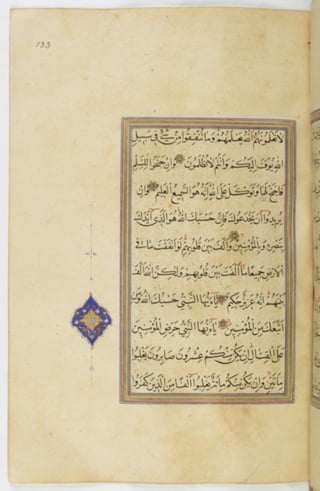 133
لَا تَعْلَمُونَهُمُ اللهُ يَعْلَمُهُمْ وَمَا تُنْفِقُوا مِنْ شَيْءٍ فِي سَبِيلِ
اللهِ يُوَفَّ إِلَيْكُمْ وَأَنْتُمْ لَا تُظْلَمُونَ وَإِنْ جَنَحُوا لِلسَّلْمِ
فَاجْنَحْ لَهَا وَتَوَكَّلْ عَلَى اللهِ إِنَّهُ هُوَ السَّمِيعُ الْعَلِيمُ وَإِنْ
يُرِيدُوا أَنْ يَخْدَعُوكَ فَإِنَّ حَسْبَكَ اللهُ هُوَ الَّذِي أَيَّدَكَ
بِنَصْرِهِ وَبِالْمُؤْمِنِينَ وَأَلَّفَ بَيْنَ قُلُوبِهِمْ لَوْ أَنْفَقْتَ مَا فِي
الْأَرْضِ جَمِيعًا مَا أَلَّفْتَ بَيْنَ قُلُوبِهِمْ وَلَكِنَّ اللهَ أَلَّفَ
بَيْنَهُمْ إِنَّهُ عَزِيزٌ حَكِيمٌ يَا أَيُّهَا النَّبِيُّ حَسْبُكَ اللهُ وَمَنِ
اتَّبَعَكَ مِنَ الْمُؤْمِنِينَ يَا أَيُّهَا النَّبِيُّ حَرِّضِ الْمُؤْمِنِينَ
عَلَى الْقِتَالِ إِنْ يَكُنْ مِنْكُمْ عِشْرُونَ صَابِرُونَ يَغْلِبُوا
مِائَتَيْنِ وَإِنْ يَكُنْ مِنْكُمْ مِائَةٌ يَغْلِبُوا أَلْفًا مِنَ الَّذِينَ كَفَرُوا